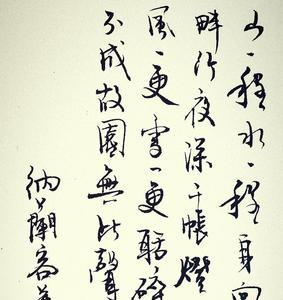 山一程水一程身向
畔行夜深千帐燈
風一更雪一更聒碎
不成故園無此聲
納蘭容若